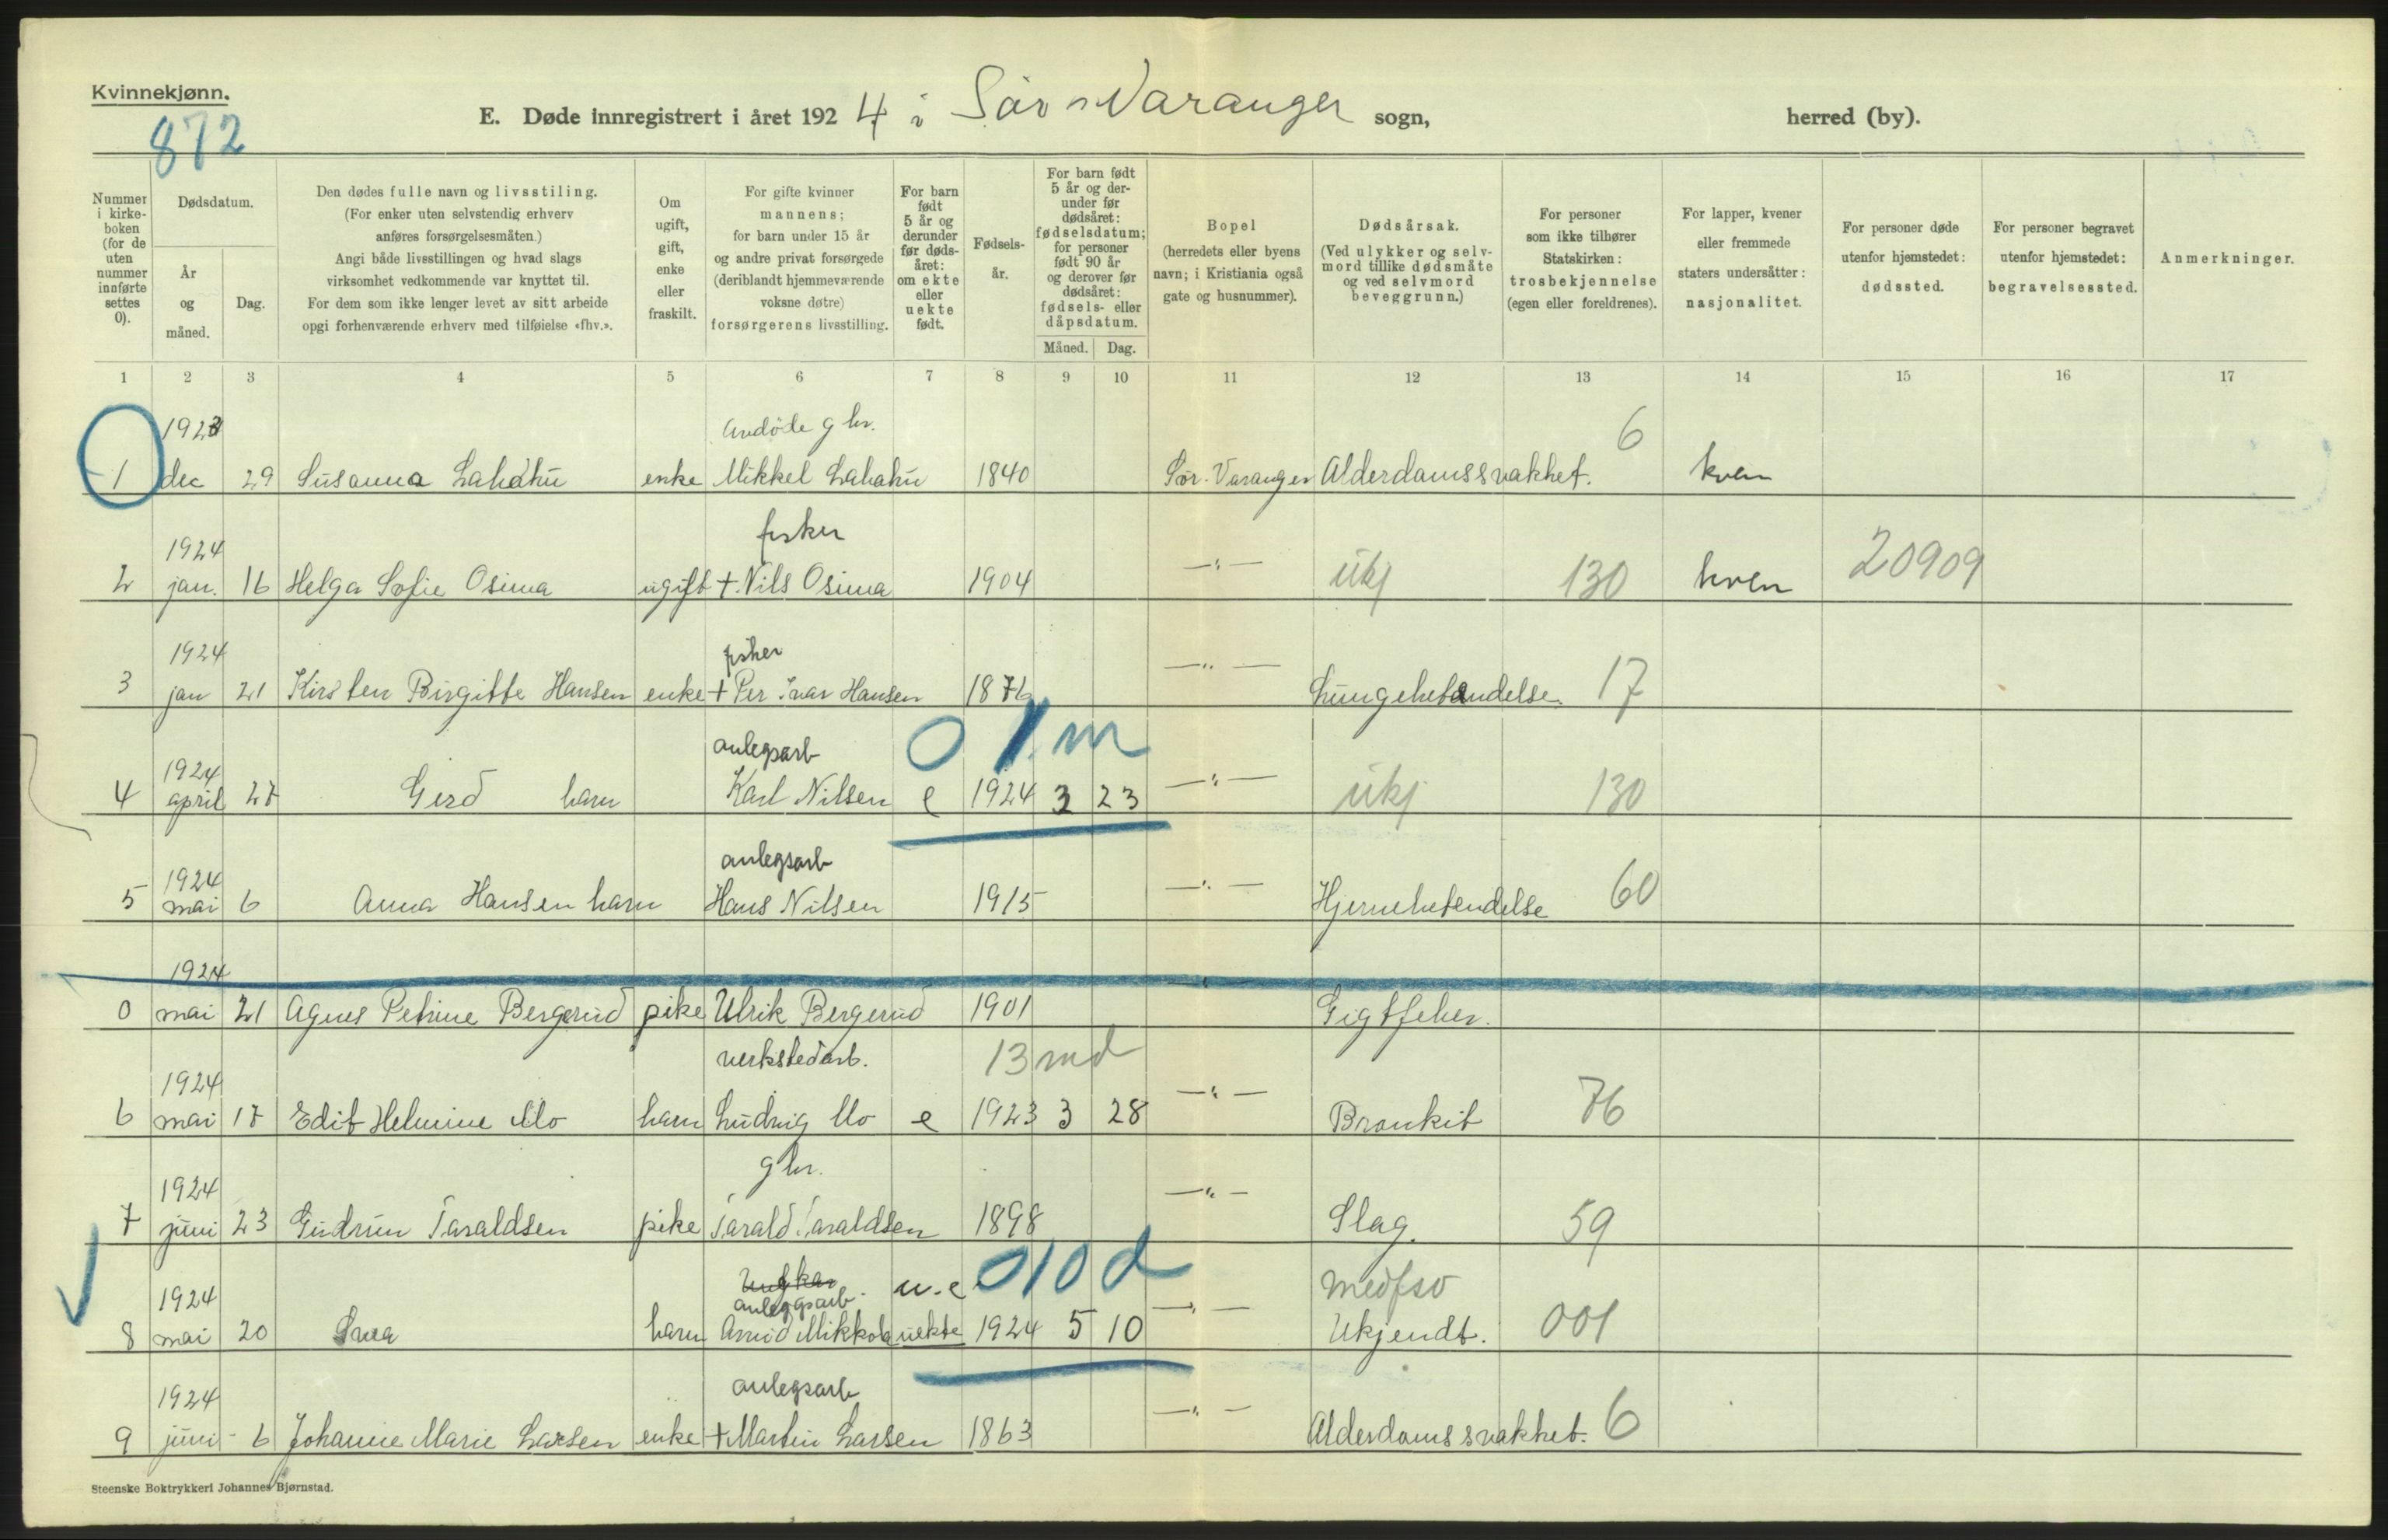 Kvinnekjønn.
872
E. Døde innregistrert i året 1924 i Sør-Varanger sogn, herred (by).
Nummer i kirke-boken (for de uten nummer innførte settes 0).
Dødsdatum.
År og måned.
Dag.
Den dødes fulle navn og livsstiling.
(For enker uten selvstendig erhverv
anføres forsørgelsesmåten.)
Angi både livsstillingen og hvad slags
virksomhet vedkommende var knyttet til.
For dem som ikke lenger levet av sitt arbeide
opgi forhenværende erhverv med tilføielse «fhv.».
Om ugift, gift, enke eller fraskilt.
For gifte kvinner
mannens;
for barn under 15 år
og andre privat forsørgede
(deriblandt hjemmeværende
voksne døtre)
forsørgerens livsstilling.
For barn født 5 år og derunder før døds-året: om ekte eller uekte født.
Fødsels-år.
For barn født 5 år og der-under før dødsåret: fødselsdatum; for personer født 90 år og derover før dødsåret: fødsels- eller dåpsdatum.
Måned. Dag.
Bopel
(herredets eller byens
navn; i Kristiania også
gate og husnummer).
Dødsårsak.
(Ved ulykker og selv-
mord tillike dødsmåte
og ved selvmord
beveggrunn.)
For personer
som ikke tilhører
Statskirken:
trosbekjennelse
(egen eller foreldrenes).
For lapper, kvener
eller fremmede
staters undersåtter:
nasjonalitet.
For personer døde
utenfor hjemstedet:
dødssted.
For personer begravet
utenfor hjemstedet:
begravelsessted.
Anmerkninger.
1 2 3 4 5 6 7 8 9 10 11 12 13 14 15 16 17
1923 avdøde gbr. 6
1 dec 29 Susanna Lahdhu enke Mikkel Lahahu 1840 Sør-Varanger Alderdomssvakhet. kven
1924 fisker
2 jan. 16 Helga Sofie Osima ugift + Nils Osima 1904 —"— ukj 130 kven 20909
1924 fisker
3 jan 21 Kirsten Birgitte Hansen enke + Per Ivar Hansen 1876 —"— Lungebetændelse. 17
1924 anlegsarb 0 1 m
4 april 27 Gerd barn Karl Nilsen e 1924 3 23 —"— ukj 130
1924 anlegsarb
5 mai 6 Anna Hansen barn Hans Nilsen 1915 —"— Hjernebetendelse 60
1924
0 mai 21 Agnes Petrine Bergerud pike Ulrik Bergerud 1901 " Gigtfeber.
1924 verkstedarb. 13 md
6 mai 17 Edit Helmine Mo barn Ludvig Mo e 1923 3 28 —"— Bronkit 76
1924 gbr.
7 juni 23 Gudrun Taraldsen pike Tarald Taraldsen 1898 —"— Slag. 59
1924 Ungkar anleggsarb. u.e 0 10 d medfsv
8 mai 20 Svea barn Arvid Mikkola uekte 1924 5 10 —"— Ukjendt. 001
1924 anlegsarb
9 juni 6 Johanne Marie Larsen enke + Martin Larsen 1863 —"— Alderdomssvakhet. 6
Steenske Boktrykkeri Johannes Bjørnstad.